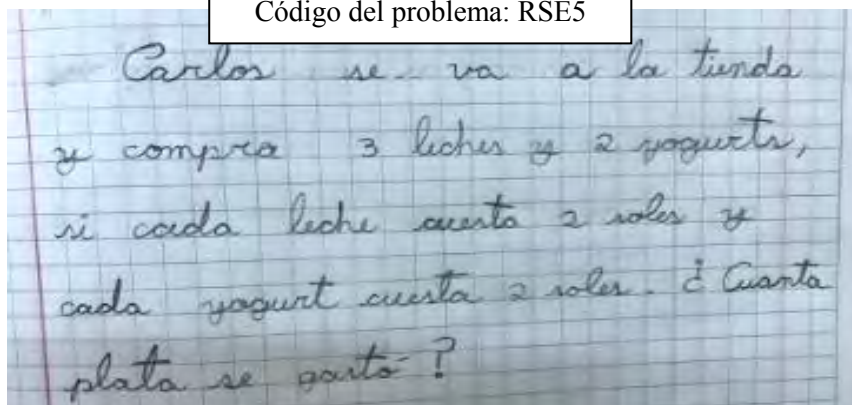 Código del problema: RSE5
Carlos se va a la tienda
y compra 3 leches y 2 yogurts,
si cada leche cuesta 2 soles y
cada yogurt cuesta 2 soles. ¿Cuanta
plata se gastó?